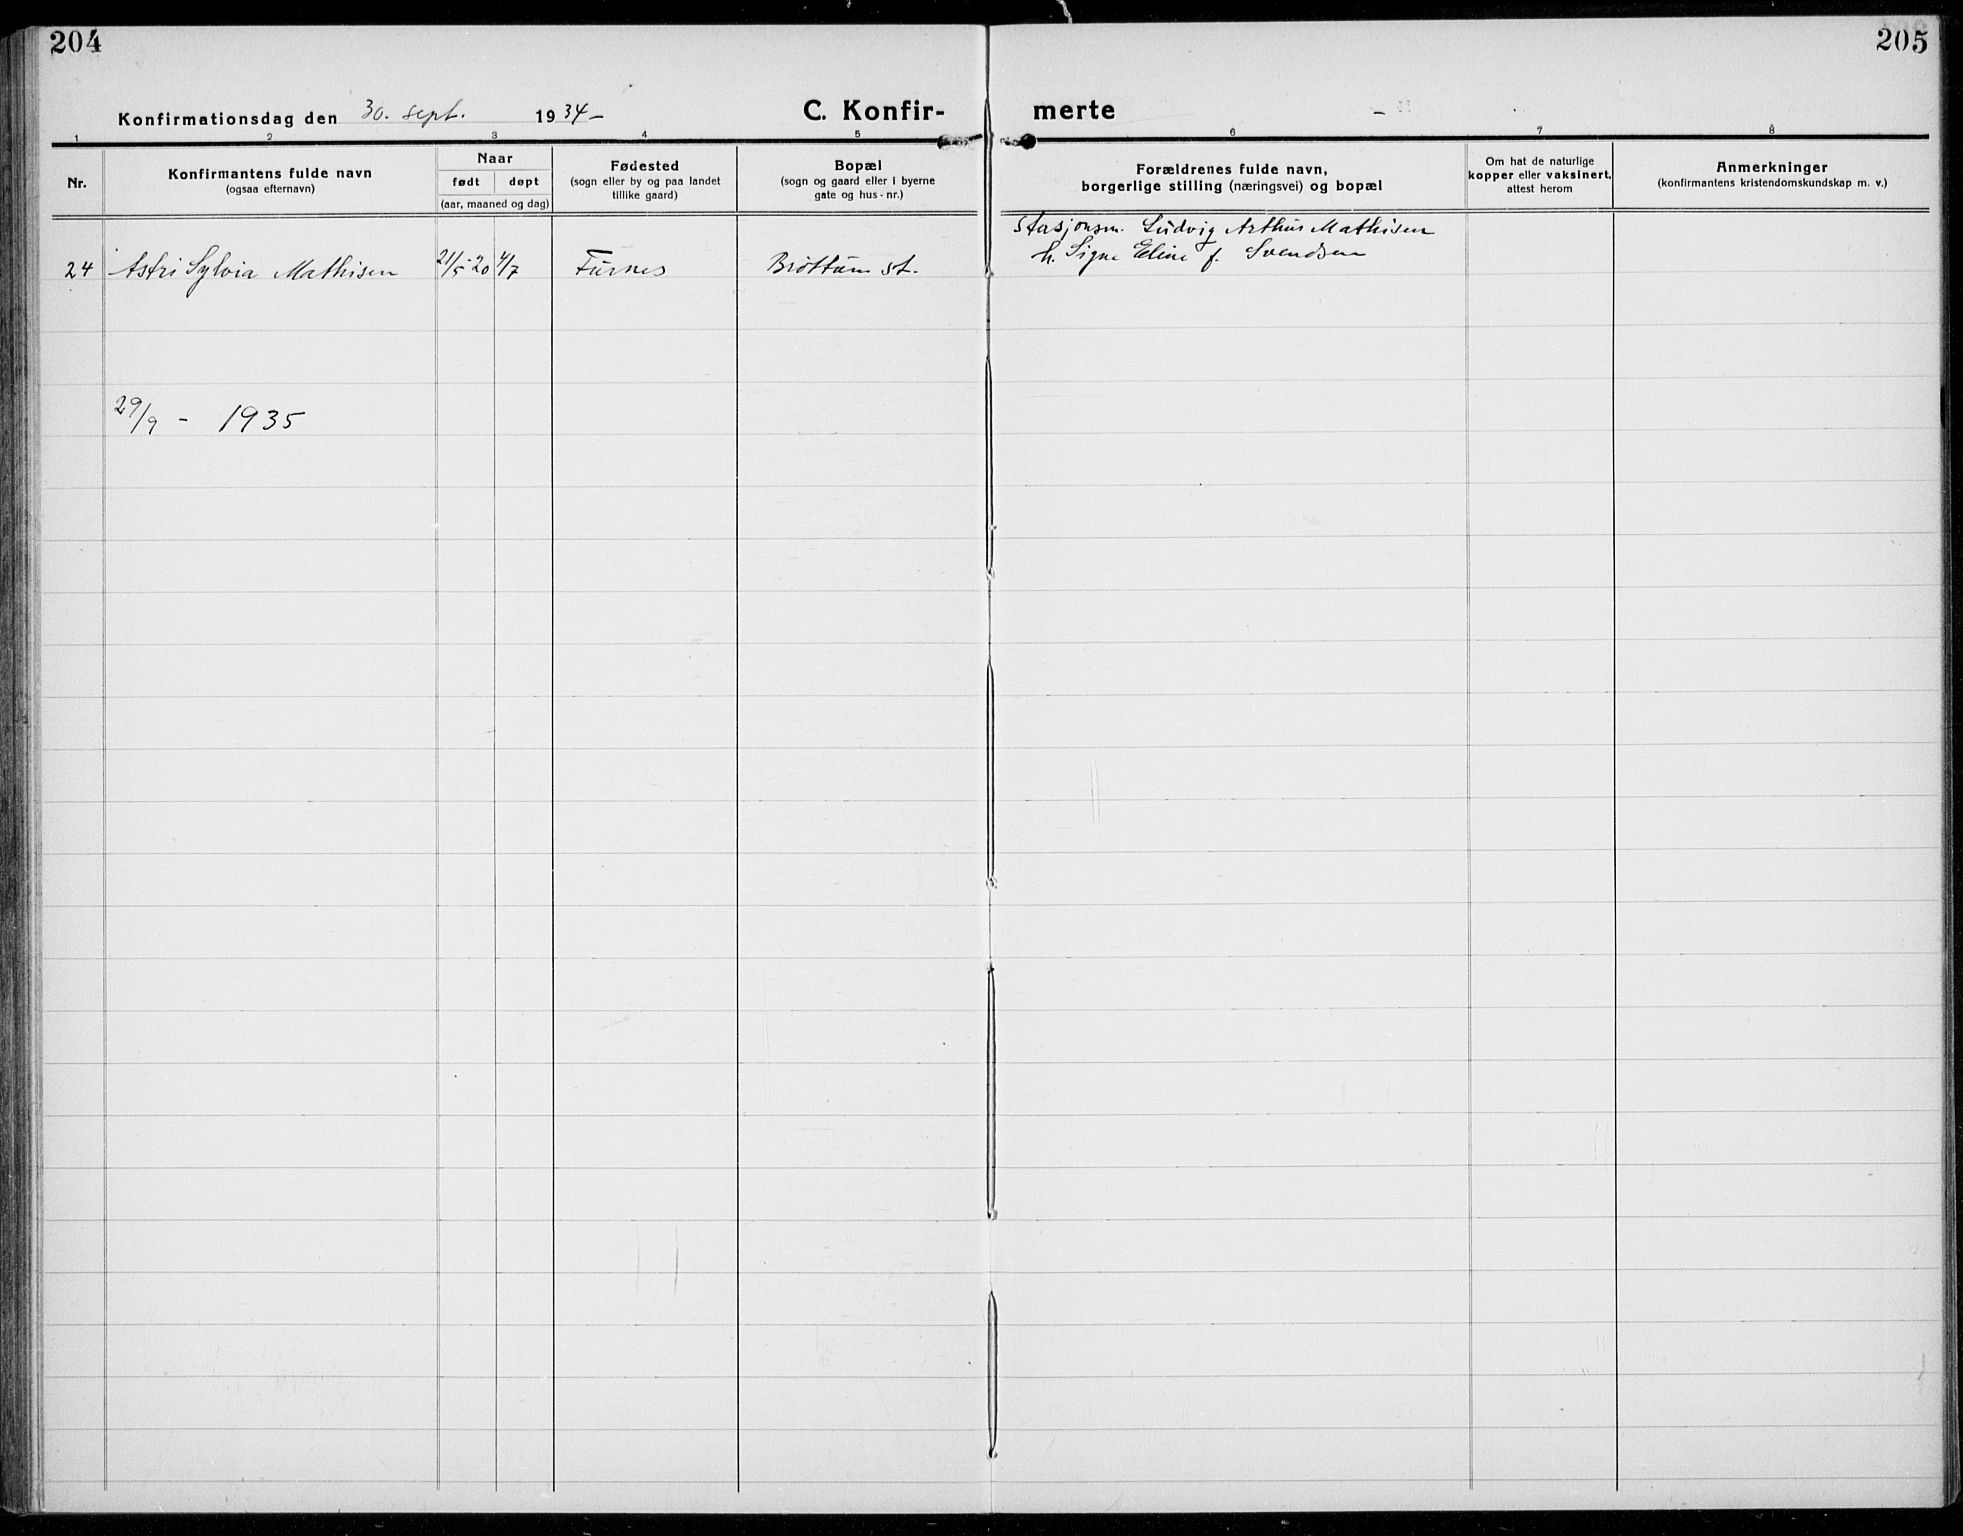 204
205
Konfirmationsdag den 30. sept. 1934-
C. Konfir-
merte
1 2 3 4 5 6 7 8
Nr.
Konfirmantens fulde navn
(ogsaa efternavn)
Naar
født døpt
(aar, maaned og dag)
Fødested
(sogn eller by og paa landet
tillike gaard)
Bopæl
(sogn og gaard eller i byerne
gate og hus-nr.)
Forældrenes fulde navn,
borgerlige stilling (næringsvei) og bopæl
Om hat de naturlige
kopper eller vaksinert,
attest herom
Anmerkninger
(konfirmantens kristendomskundskap m. v.)
24 Astri Sylvia Mathisen 21/5-20 4/7 Furnes Brøttum st.
Stasjonsm. Ludvig Arthur Mathisen
h. Signe Eline f. Svendsen
29/9 - 1935